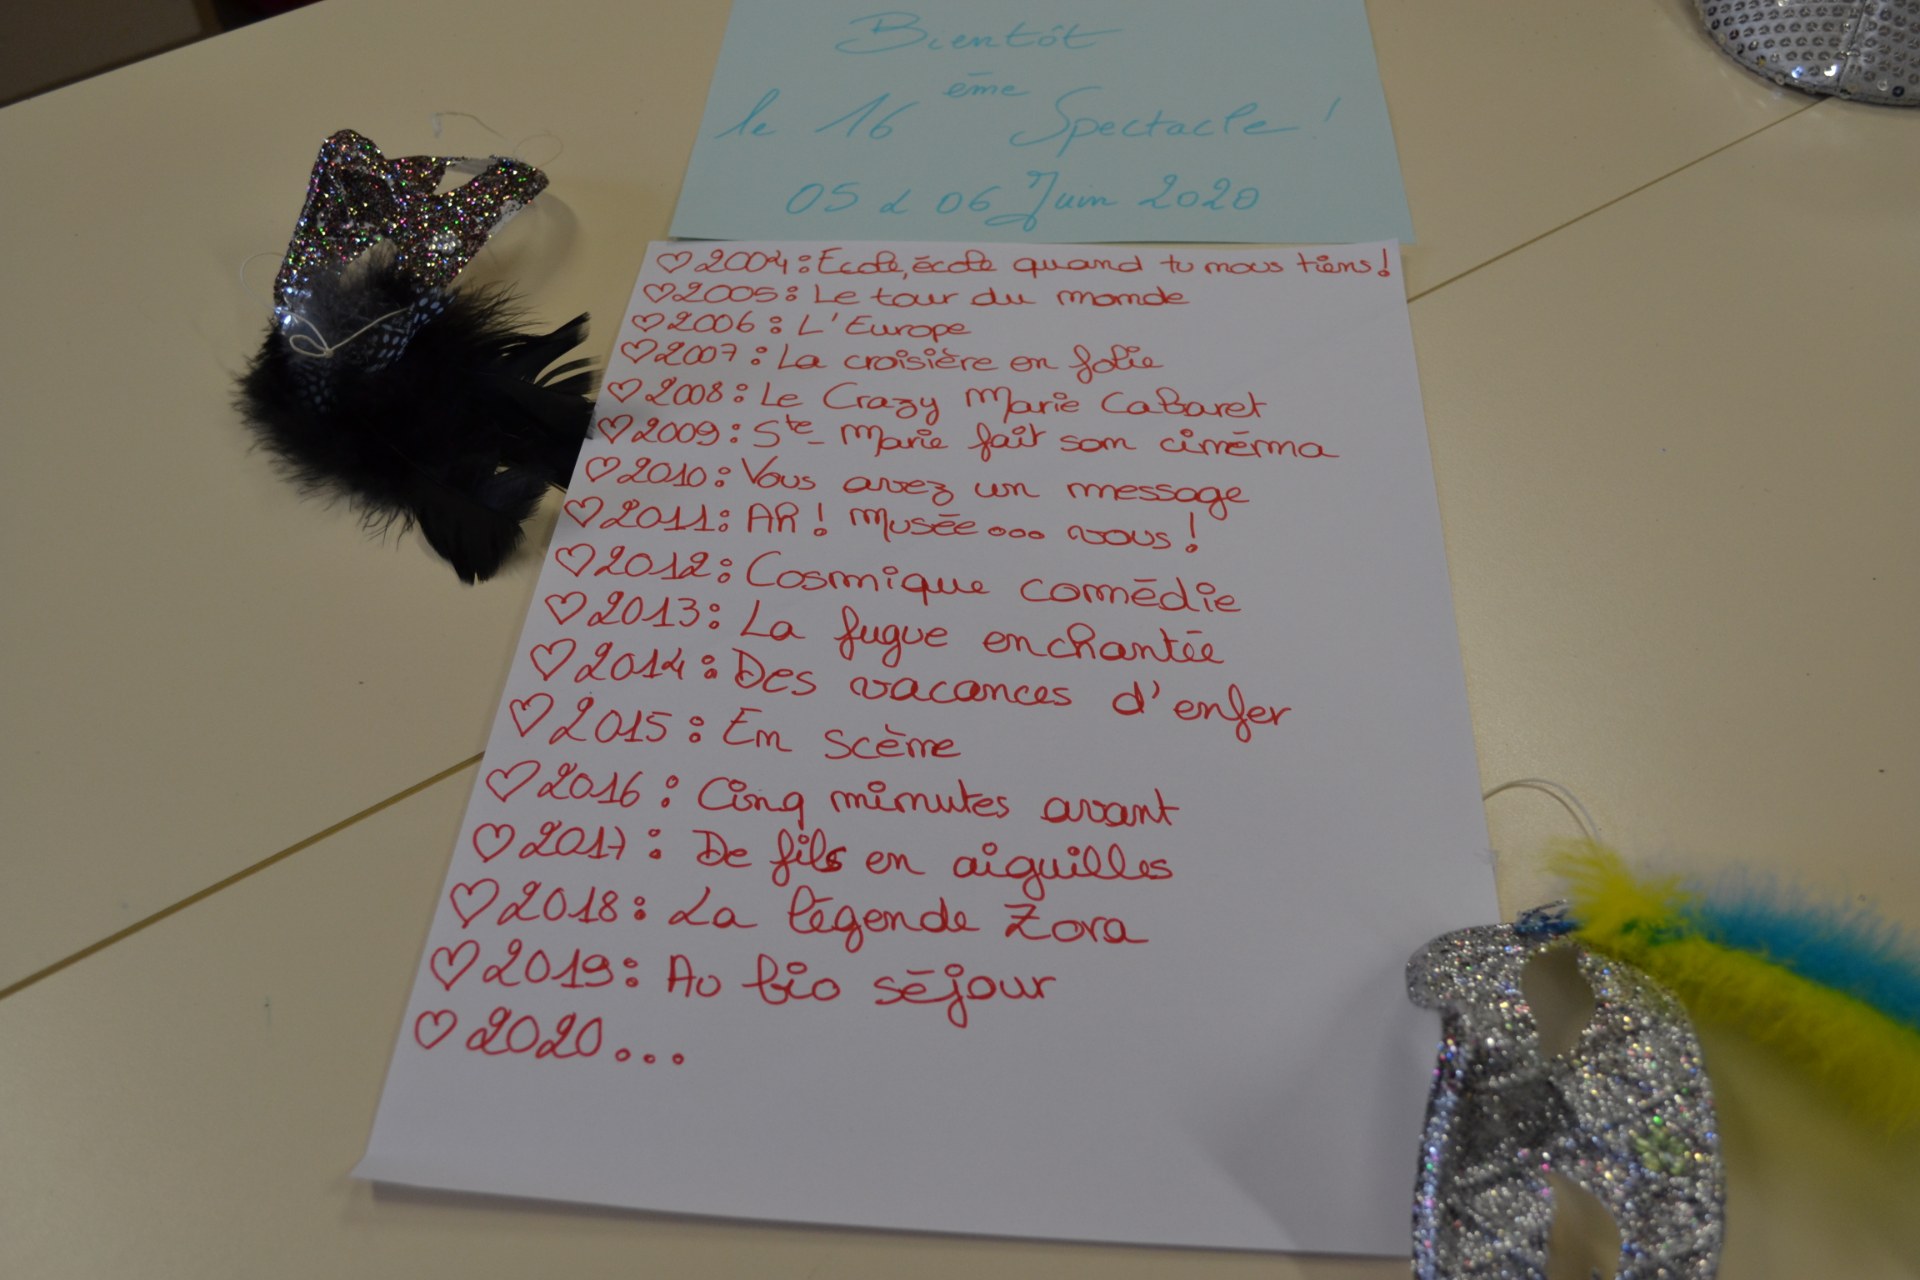 Bientôt
le 16ème Spectacle !
05 & 06 Juin 2020
♡ 2004 : Ecole, école quand tu nous tiens !
♡ 2005 : Le tour du monde
♡ 2006 : L'Europe
♡ 2007 : La croisière en folie
♡ 2008 : Le Crazy Marie Cabaret
♡ 2009 : Ste-Marie fait son cinéma
♡ 2010 : Vous avez un message
♡ 2011 : AH ! Musée... vous !
♡ 2012 : Cosmique comédie
♡ 2013 : La fugue enchantée
♡ 2014 : Des vacances d'enfer
♡ 2015 : En scène
♡ 2016 : Cinq minutes avant
♡ 2017 : De fils en aiguilles
♡ 2018 : La légende Zora
♡ 2019 : Au bio séjour
♡ 2020...